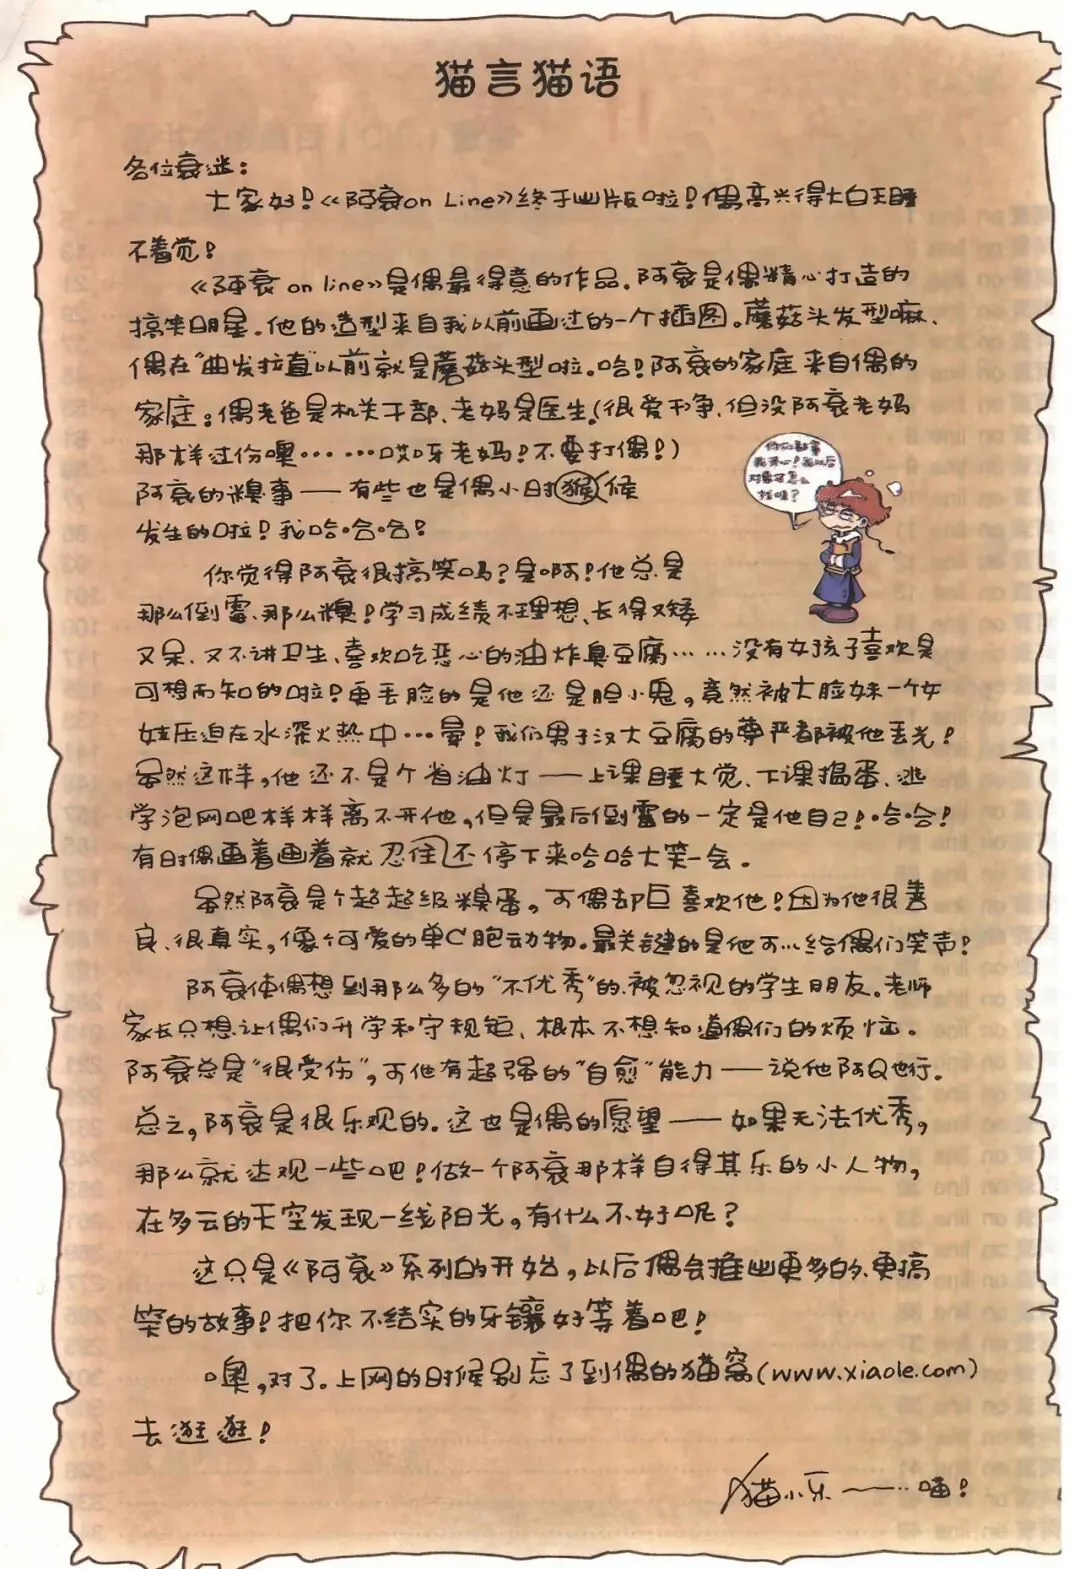 猫言猫语
各位衰迷：
大家好！《阿衰on Line》终于出版啦！偶高兴得大白天睡
不着觉！
《阿衰 on line》是偶最得意的作品．阿衰是偶精心打造的
搞笑明星．他的造型来自我以前画过的一个插图。蘑菇头发型嘛、
偶在"曲发拉直"以前就是蘑菇头型啦．哈！阿衰的家庭来自偶的
家庭：偶老爸是机关干部、老妈是医生．（很爱干净、但没阿衰老妈
那样过份噢……哎呀老妈！不要打偶！）
阿衰的糗事——有些也是偶小时猴候
发生的啦！我哈·哈·哈！
你的故事
我开心！我以后
对象可怎么
找哇？
你觉得阿衰很搞笑吗？是啊！他总是
那么倒霉、那么糗！学习成绩不理想、长得又矮
又呆、又不讲卫生、喜欢吃恶心的油炸臭豆腐……没有女孩子喜欢是
可想而知的啦！更丢脸的是他还是胆小鬼。竟然被大脸妹一个女
娃压迫在水深火热中…晕！我们男子汉大豆腐的尊严都被他丢光！
虽然这样，他还不是个省油灯——上课睡大觉、下课捣蛋、逃
学泡网吧样样离不开他，但是最后倒霉的一定是他自己！·哈哈！
有时偶画着画着就忍住不停下来哈哈大笑一会．
虽然阿衰是个超超级糗蛋，可偶却巨喜欢他！因为他很善
良、很真实，像个可爱的单C胞动物．最关键的是他可以给偶们笑声！
阿衰使偶想到那么多的"不优秀"的、被忽视的学生朋友。老师
家长只想让偶们升学和守规矩、根本不想知道偶们的烦恼。
阿衰总是"很受伤"，可他有超强的"自愈"能力——说他阿Q也行．
总之，阿衰是很乐观的．这也是偶的愿望——如果无法优秀，
那么就达观一些吧！做一个阿衰那样自得其乐的小人物，
在多云的天空发现一线阳光，有什么不好呢？
这只是《阿衰》系列的开始，以后偶会推出更多的、更搞
笑的故事！把你不结实的牙镶好等着吧！
噢，对了．上网的时候别忘了到偶的猫窝（www.xiaole.com）
去逛逛！
猫小乐——…喵！